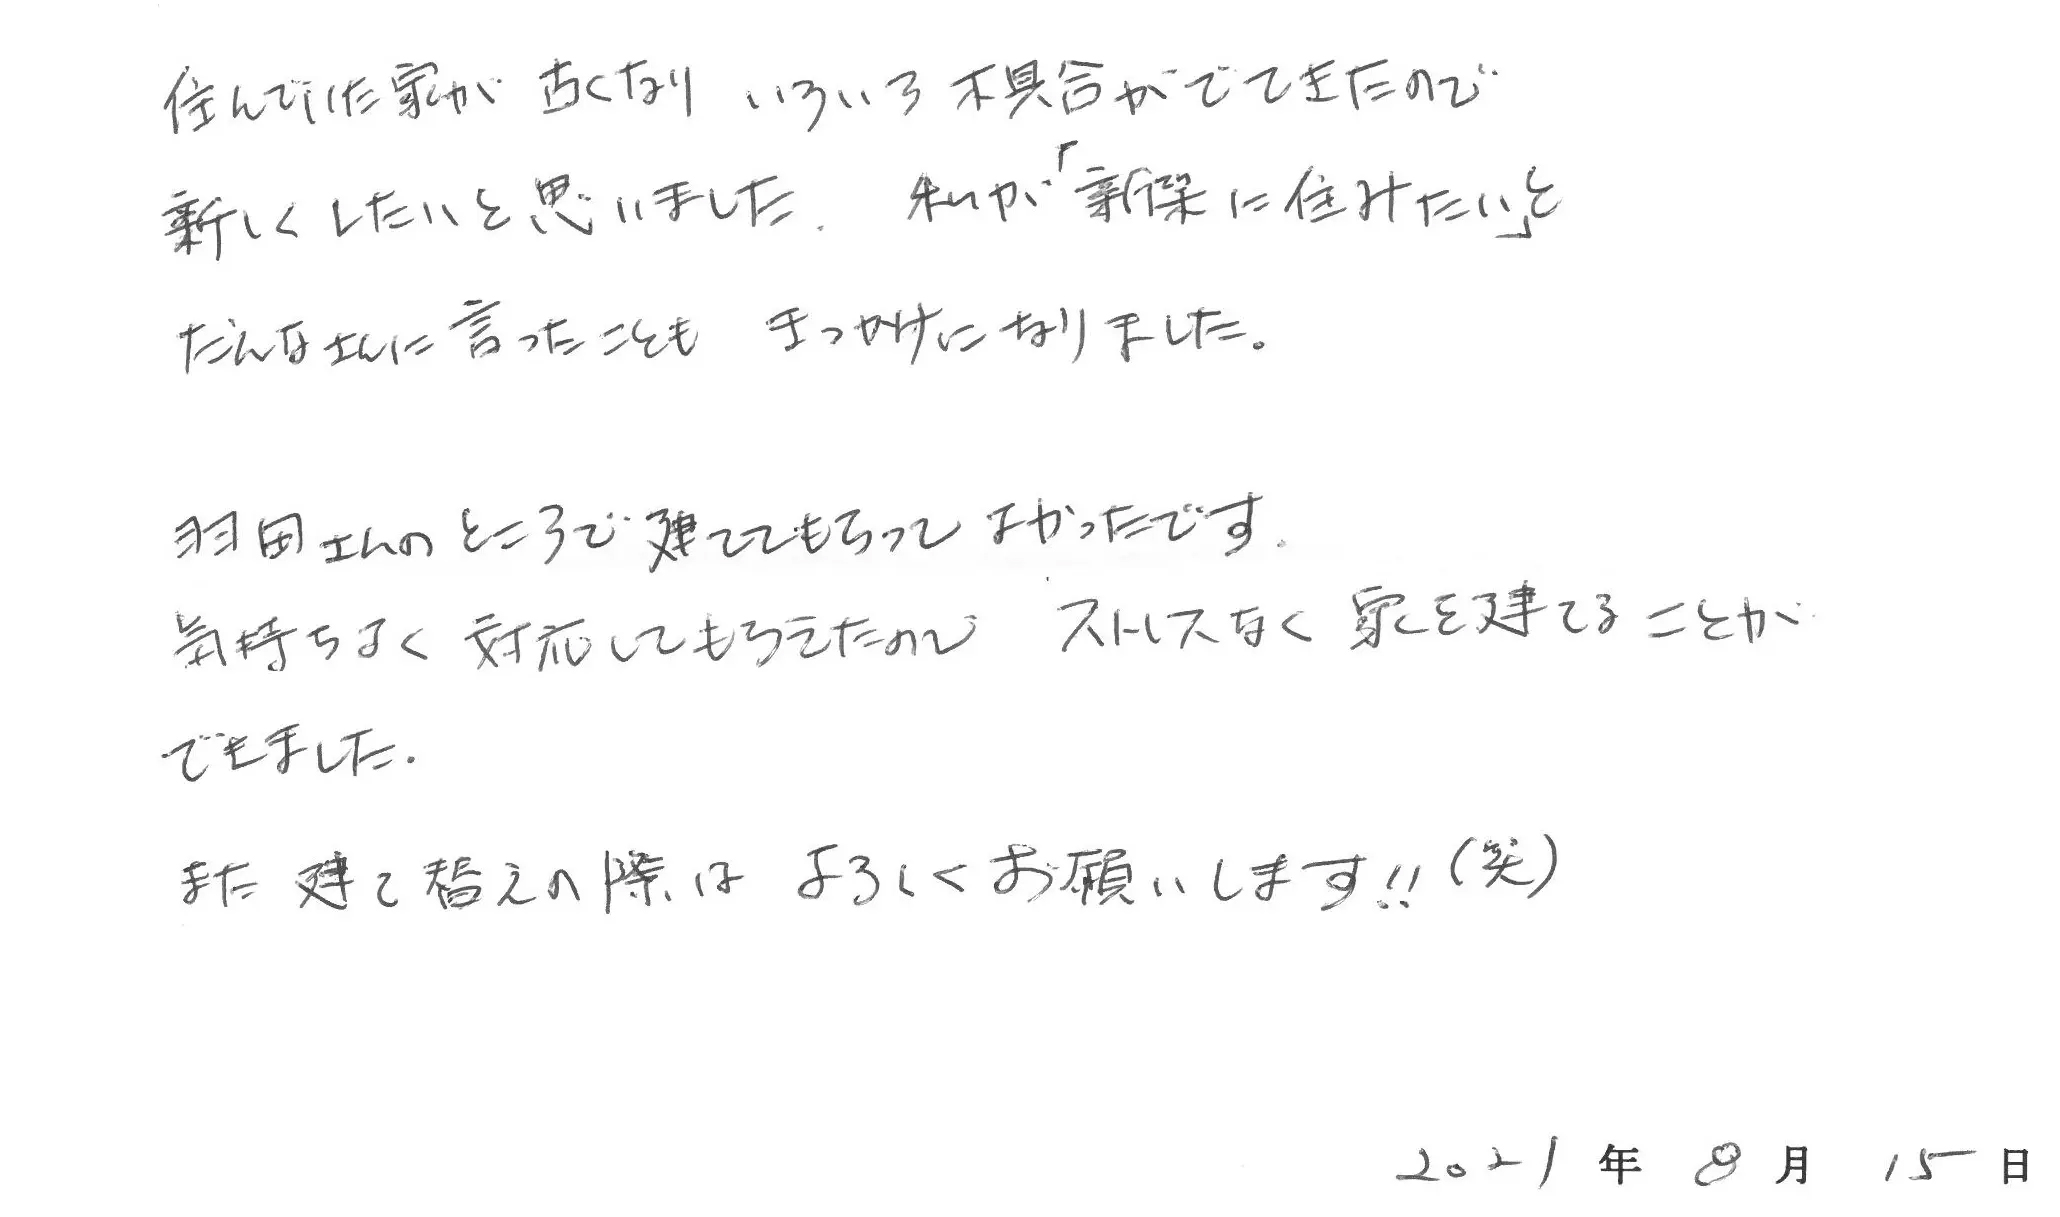 住んでいた家が 古くなり いろいろ 不具合がでてきたので
新しくしたいと思いました. 私が「新保に住みたい」と
だんなさんに言ったことも きっかけになりました。
羽田さんの ところで 建ててもらって よかったです.
気持ちよく 対応してもらえたので ストレスなく 家を建てることが
できました.
また 建て替えの際は よろしくお願いします!!(笑)
2021年 8月 15日